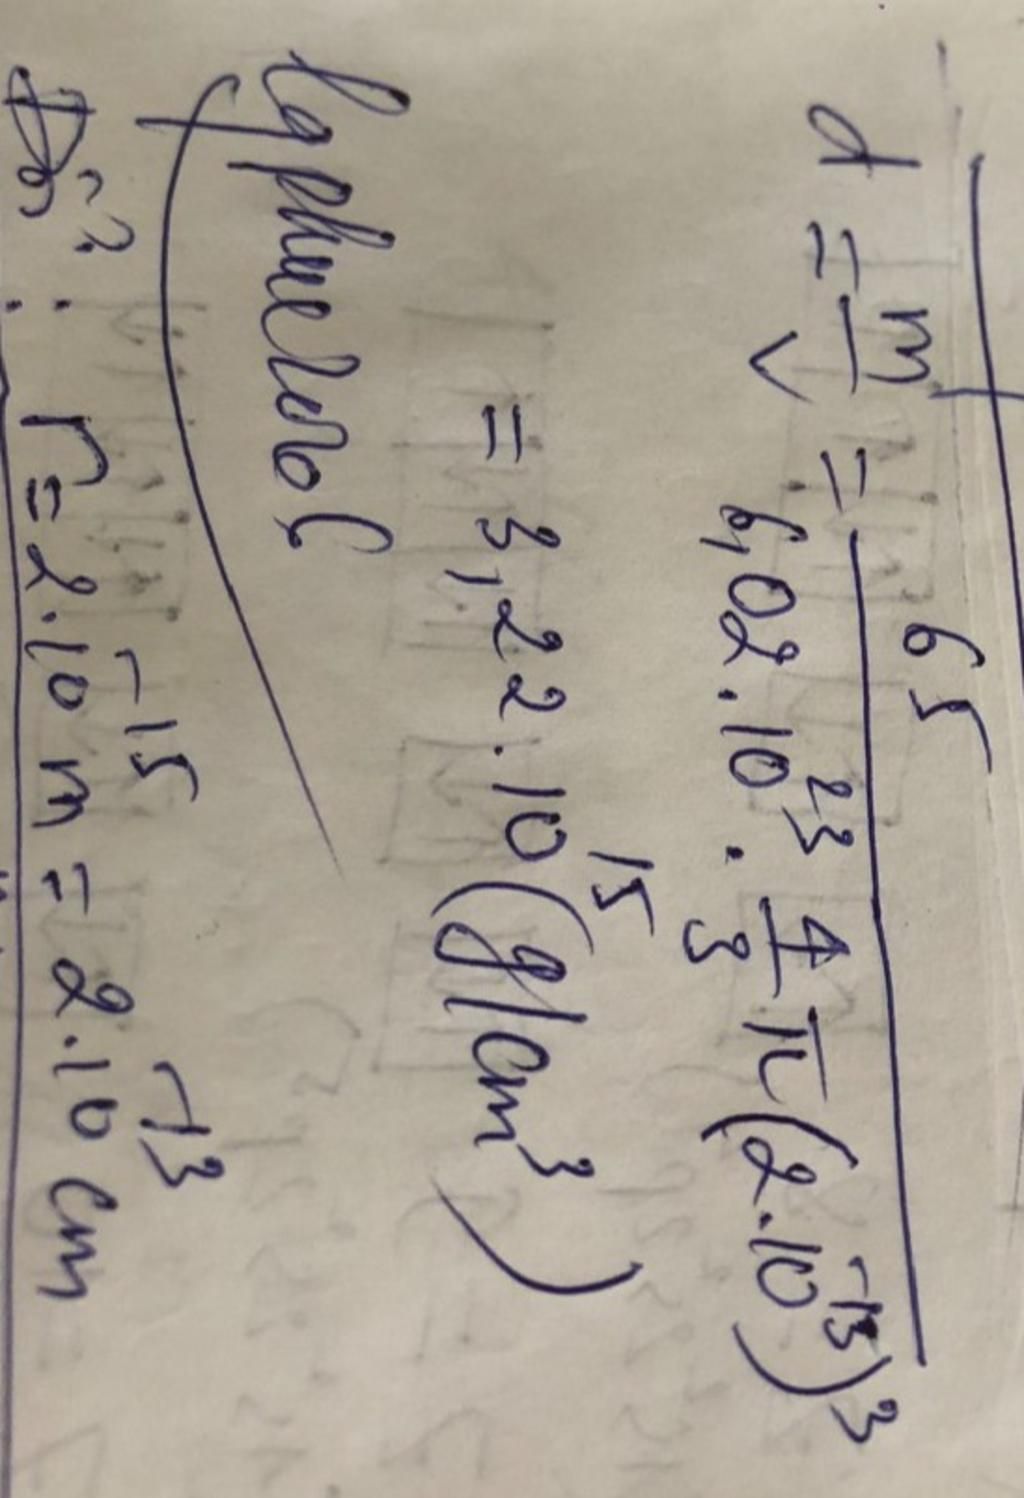 d = m/V = 65 / 6,02.10²³ . 4/3 π (2.10⁻¹³)³
= 3,22.10¹⁵ (g/cm³)
Đổi : r = 2.10⁻¹⁵ m = 2.10⁻¹³ cm